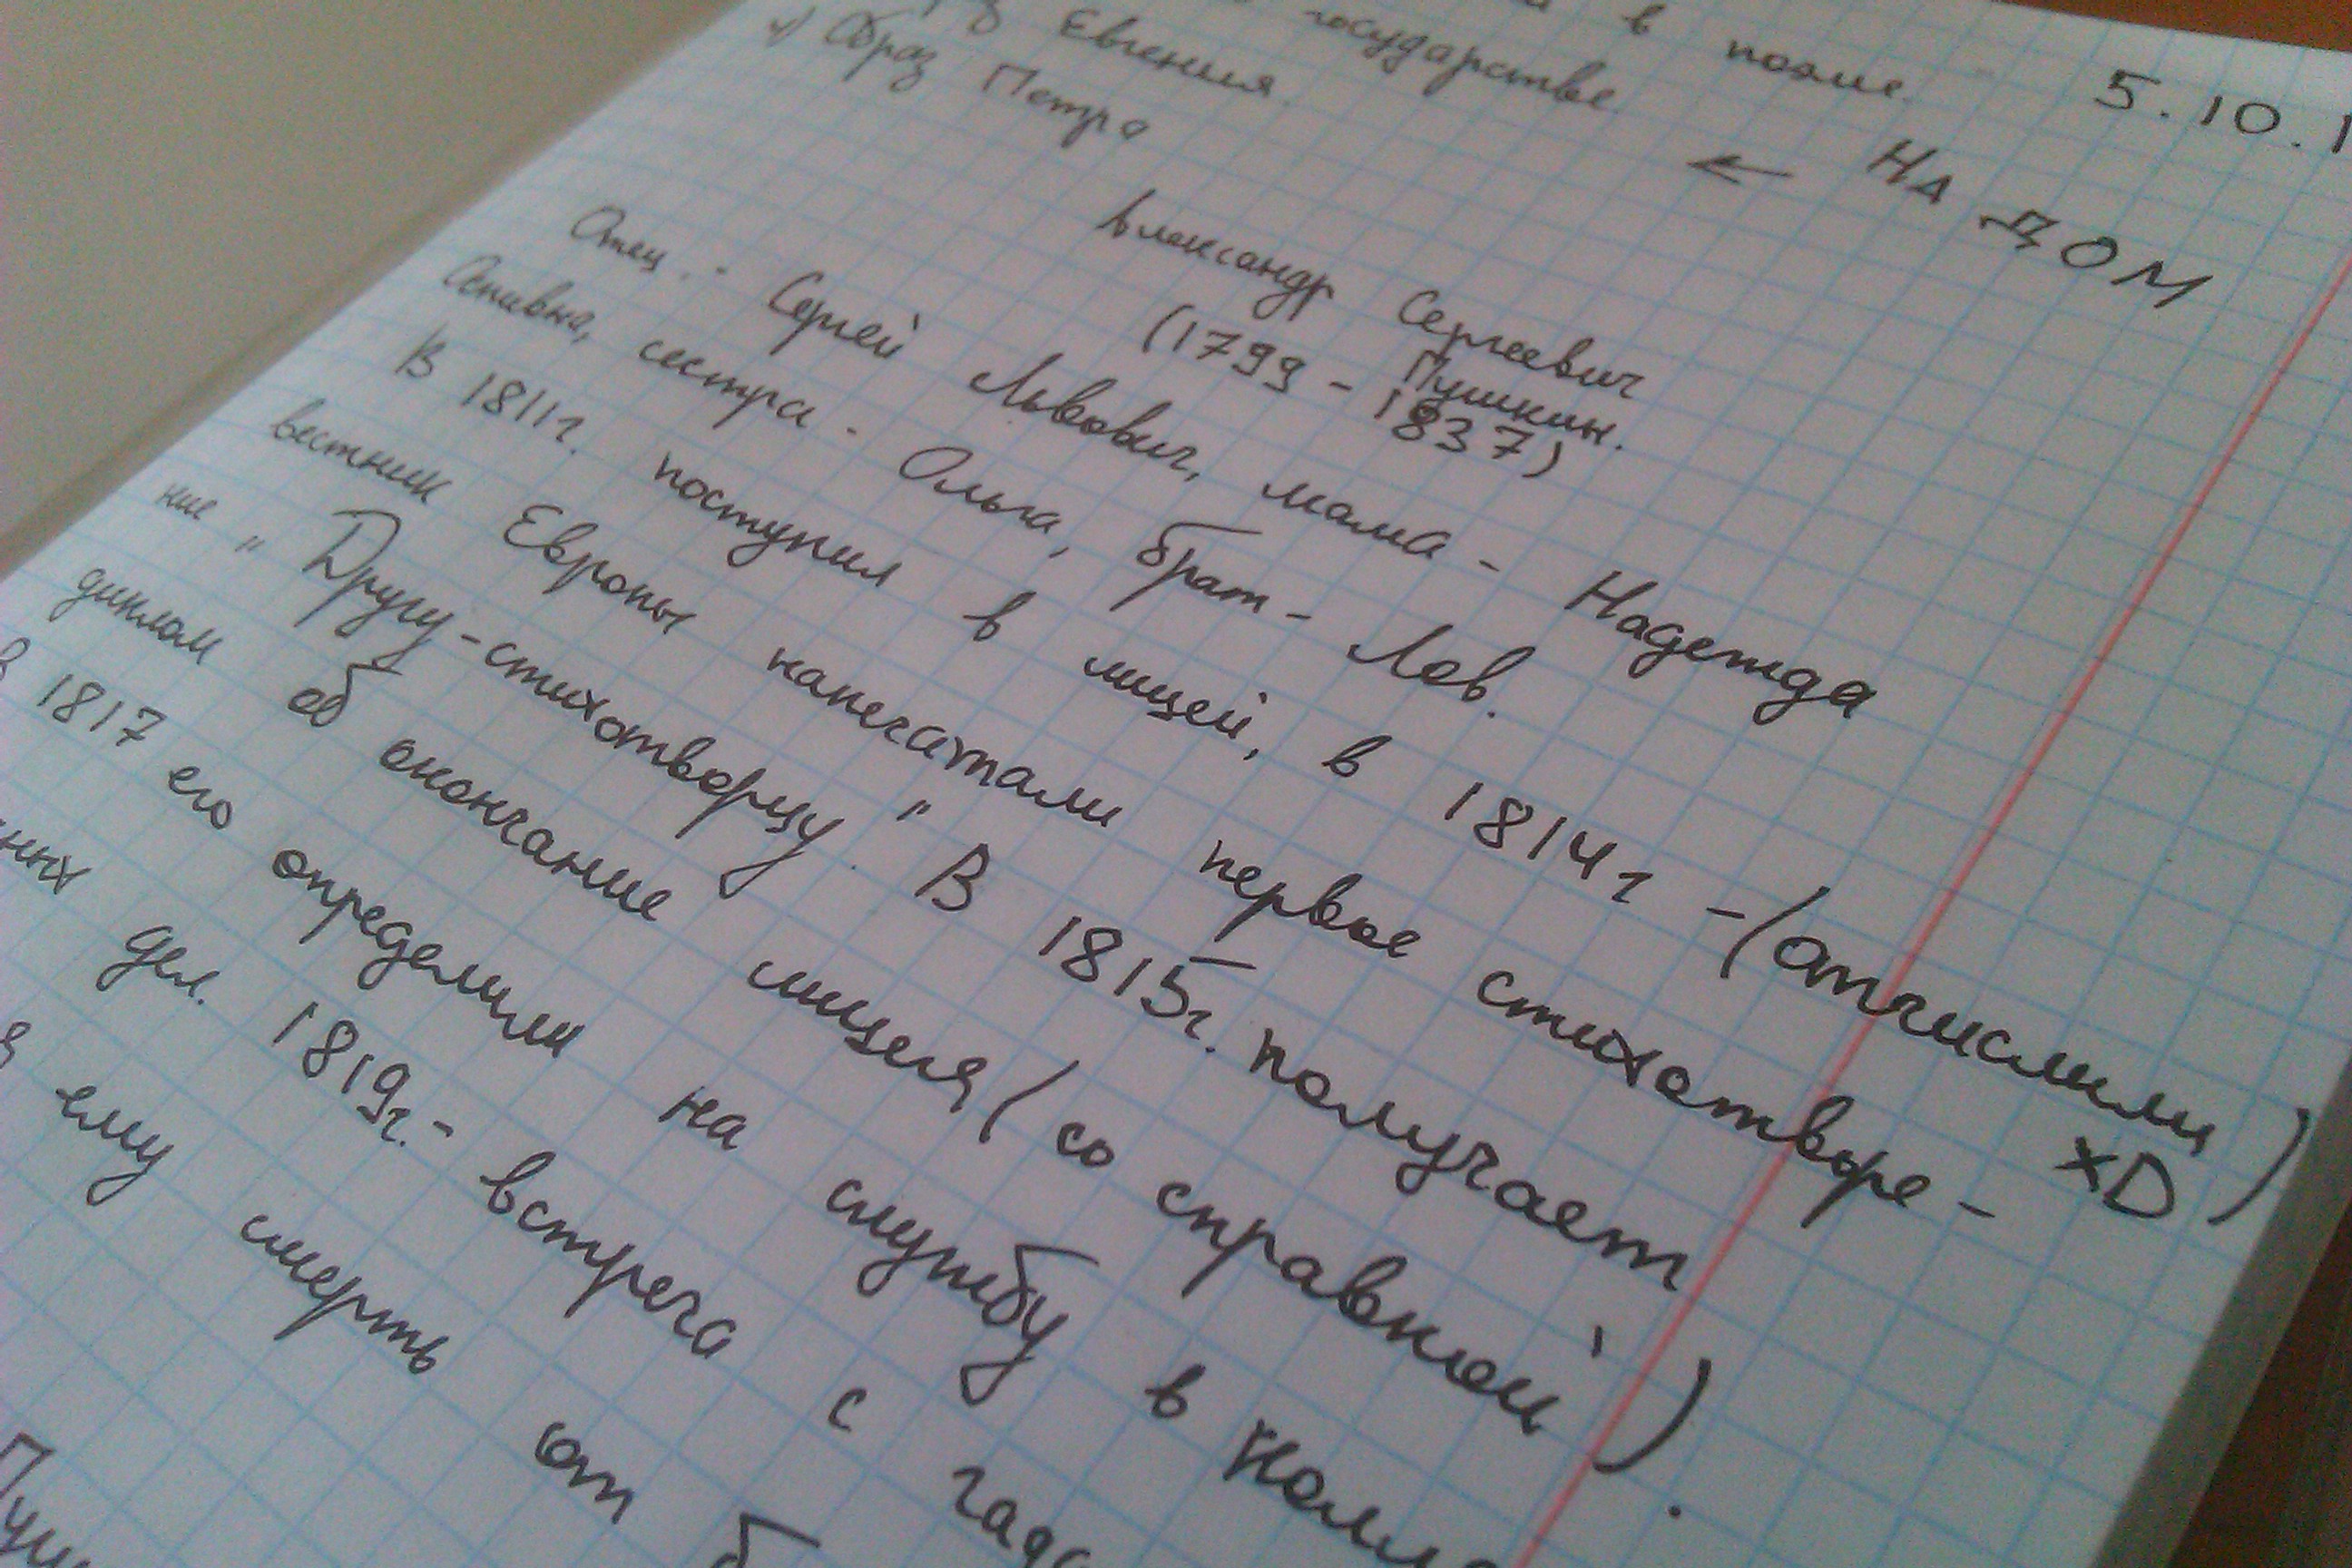 в поэме. 5.10.1
государстве
Евгения.
Образ Петра
← НА ДОМ
Александр Сергеевич
Пушкин.
(1799 - 1837)
Отец. - Сергей Львович, мама - Надежда
Асиповна, сестра - Ольга, брат - Лев.
В 1811г. поступил в лицей, в 1814г - (отчислили)
xD
вестник Европы напечатали первое стихотворе-
ние „Другу-стихотворцу." В 1815г. получает
диплом об окончание лицея (со справкой).
в 1817 его определили на службу в
нных дел. 1819г. - встреча с гада
ему смерть от б
Пуш